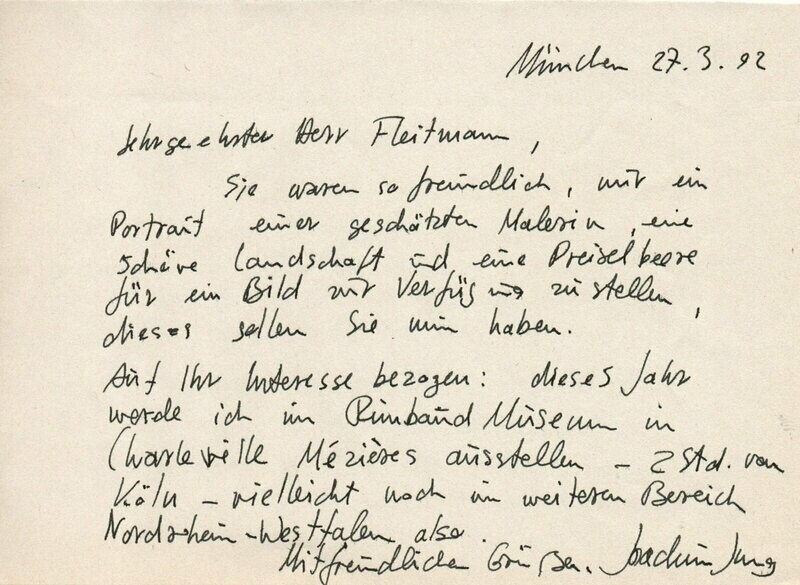 München 27.3.92
Sehr geehrter Herr Fleitmann,
Sie waren so freundlich, mir ein
Portrait einer geschätzten Malerin, eine
schöne Landschaft und eine Preiselbeere
für ein Bild zur Verfügung zu stellen,
dieses sollen Sie nun haben.
Auf Ihr Interesse bezogen: dieses Jahr
werde ich im Rimbaud Museum in
Charleville Mézières ausstellen – 2 Std. von
Köln – vielleicht noch im weiteren Bereich
Nordrhein-Westfalen also.
Mit freundlichen Grüßen, Joachim Jung